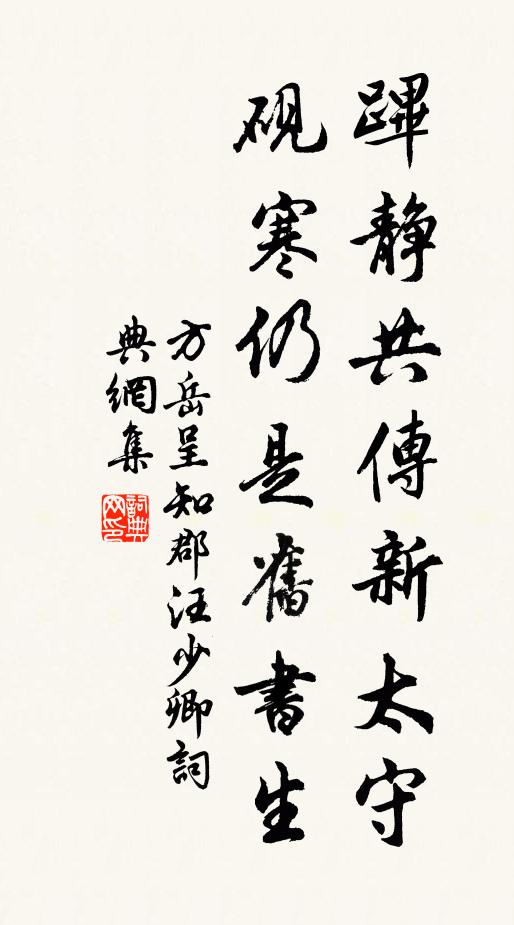 蹕静共傳新太守
硯寒仍是舊書生
方岳呈知郡汪少卿詞
典網集
詞典網印